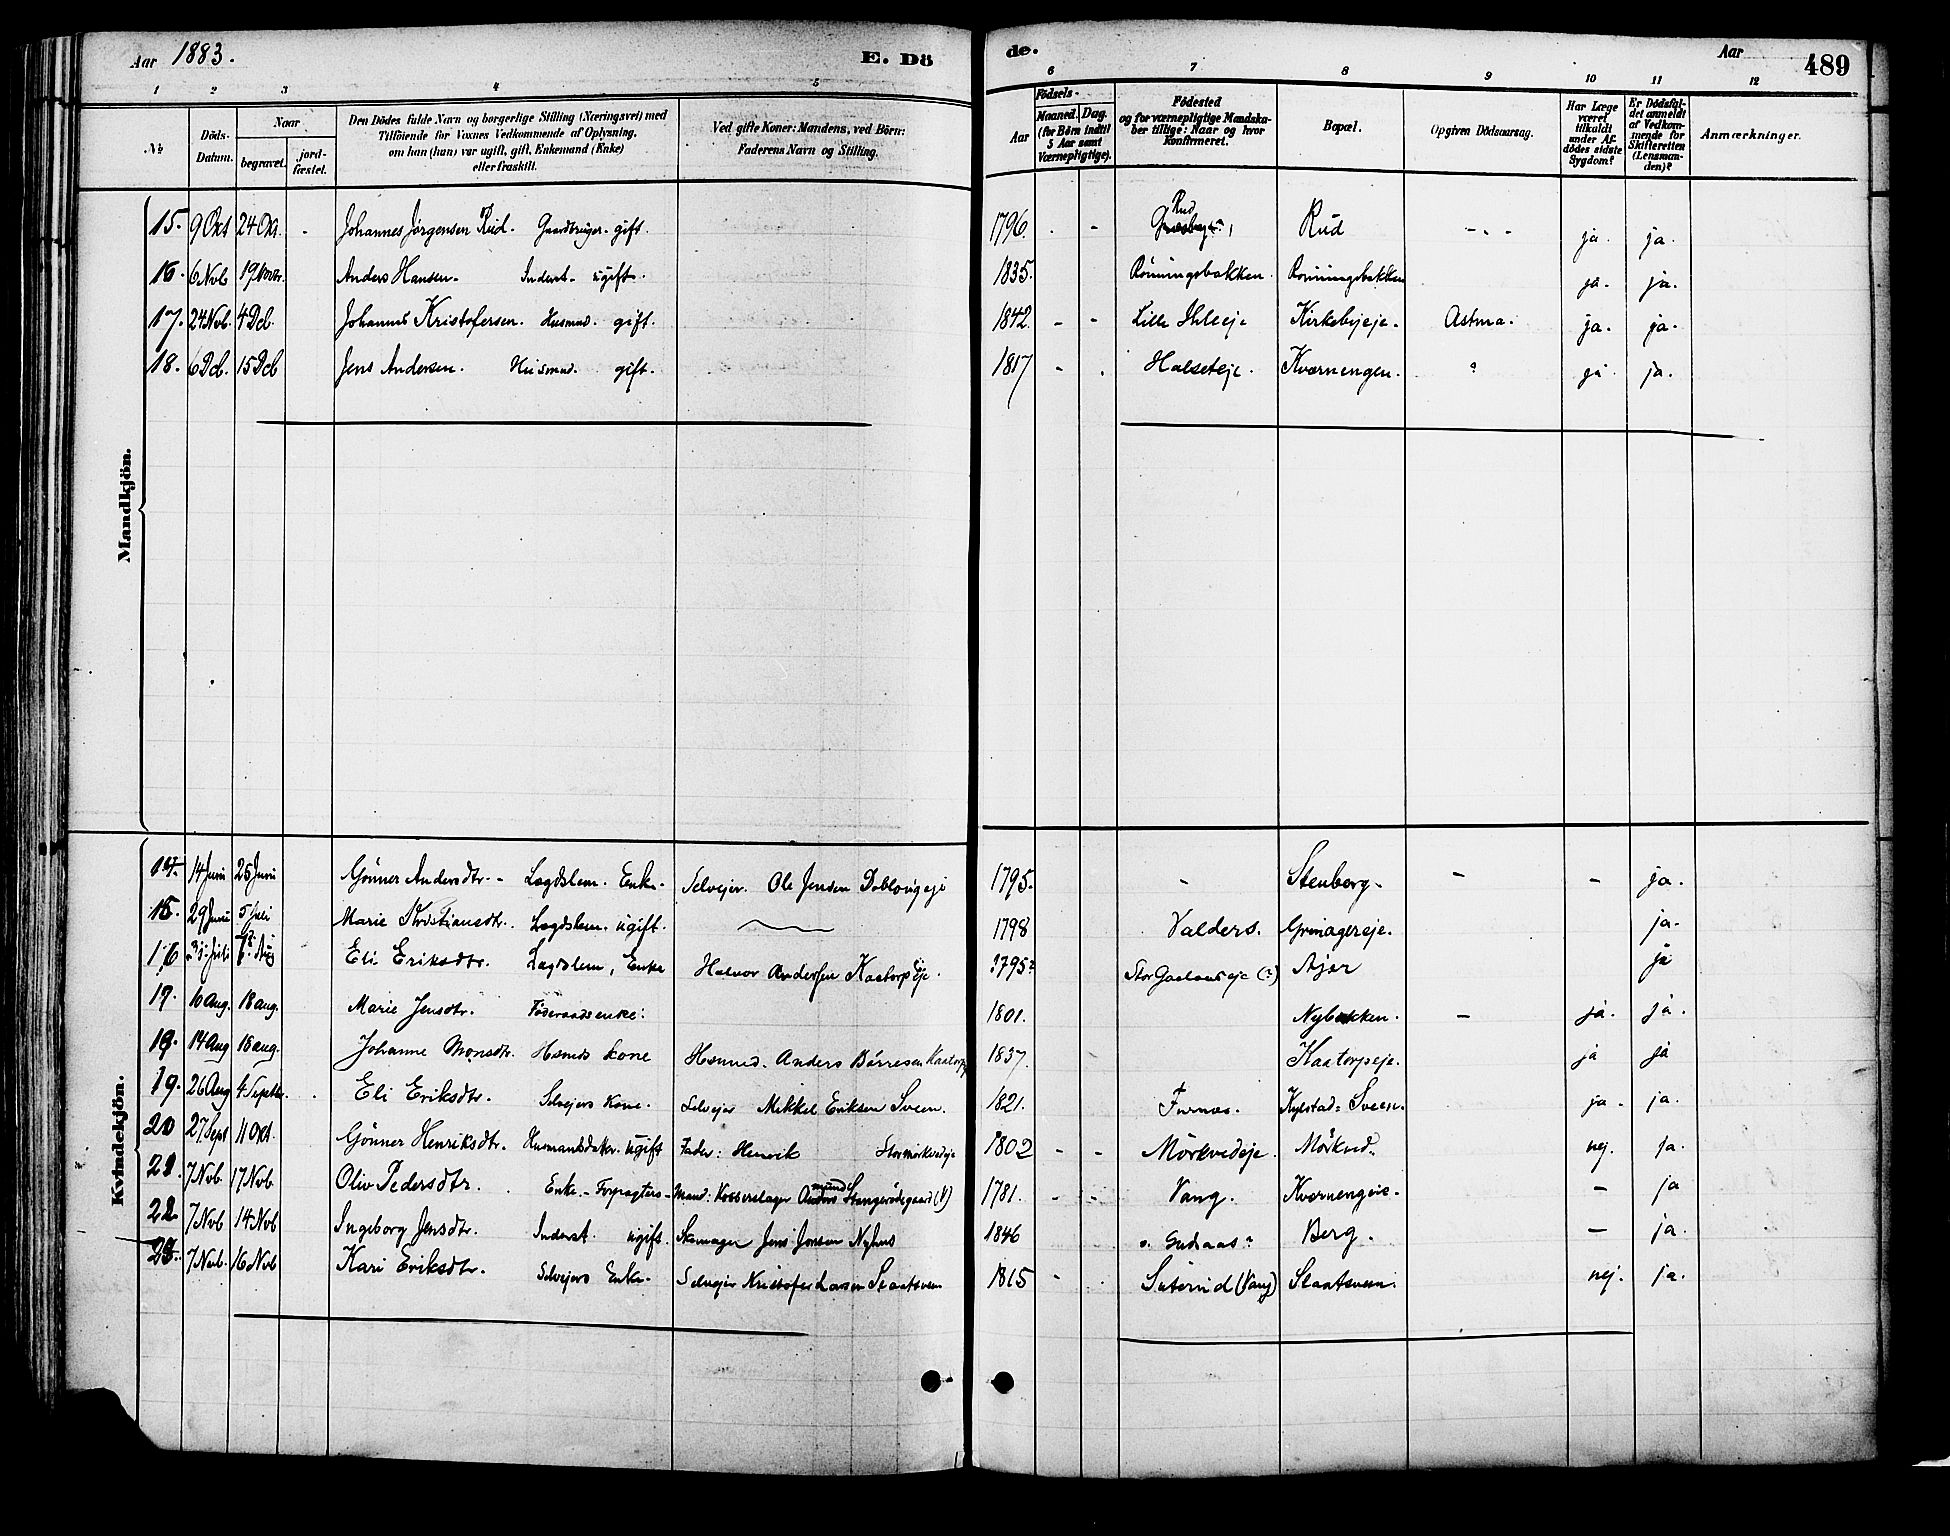 Aar 1883. E. Dö
de. Aar 489
1 2 3 4 5 6 7 8 9 10 11 12
№
Döds-Datum.
Naar
begravet. jord-fæstet.
Den Dödes fulde Navn og borgerlige Stilling (Næringsvei) med
Tilföiende for Voxnes Vedkommende af Oplysning,
om han (hun) var ugift, gift, Enkemand (Enke)
eller fraskilt.
Ved gifte Koner: Mandens, ved Börn:
Faderens Navn og Stilling.
Födsels-
Aar Maaned. Dag.
(for Börn indtil
5 Aar samt
Værnepligtige).
Födested
og for værnepligtige Mandska-
ber tillige: Naar og hvor
konfirmeret.
Bopæl.
Opgiven Dödsaarsag.
Har Læge
været
tilkaldt
under Af-
dödes sidste
Sygdom?
Er Dödsfal-
det anmeldt
af Vedkom-
mende for
Skifteretten
(Lensman-
den)?
Anmærkninger.
Mandkjön.
15. 9 Okt 24 Okt. - Johannes Jørgensen Rud. Gaardbruger - gift. 1796. - - Rud Rud - " - ja. ja.
16. 6 Novb 19 Novbr. Anders Hansen. Inderst - ugift. 1835. Rönningsbakken. Rönningsbakken ja. ja.
17. 24 Nov. 4 Dcb. Johannes Kristofersen. Husmnd. gift. 1842. - - Lille Ihleeje Kirkebyeje. Astma. ja. ja.
18. 6 Dcb. 15 Dcb Jens Andersen. Husmnd. gift. 1817 - . Halseteje. Kværnengen. ? ja ja.
Kvindekjön.
14. 14 Juni 25 Juni Gönner Andersdtr. - Lægdslem. Enke. Selveier. Ole Jensen Doblougeje 1795. - Stenberg. - - ja.
15. 29 Juni 5 Juli Marie Kristiansdtr. Lægdslem. ugift. 1798 Valders. Grimagereje. ja.
16 Juli Aug Eli Eriksdtr. Lægdslem, Enke Halvor Andersen Kaatorpseje. 1795? (?) Ajer ja
17. 10 Aug. 18 aug. Marie Jensdtr. Föderaadsenke. 1801. Nybakken. - ja. ja.
18. 14 Aug 18 aug. Johanne Monsdtr. Hsmds kone Hsmnd. Anders Børresen Kaatorp 1837. Kaatorpseje. ja ja
19. 26 Aug 4 Septbr. . Eli Eriksdtr. Selvejers Kone. Selvejer Mikkel Eriksen Sveen. 1821. Furnæs. Kylstad = Sveen. ja. ja.
20 27 Sept 11 Oct. Gönner Henriksdtr. Husmandsdatter. ugift Fader: Henrik Stormörkvedeje 1802 - - Mörkvedeje. Mörkved. nej. ja.
21. 7 Nov. 17 Nov. Oliv Pedersdtr. Enke. - Forpagters - Mand: Kobberslager Stangerödegaard (?) 1781. - - Vang. Kværnengeie. - ja
22 7 Nvb 14 Nvb Ingeborg Jensdtr. Inderst. ugift. Skomager Jens Jonsen Nyhus 1846 Berg. - ja.
23. 7 Novb. 16 Nvb Kari Eriksdtr. Selvejers Enke. Selvejer Kristofer Larsen Staatsveen 1815 - (Vang) Staatsveen. nej. ja.